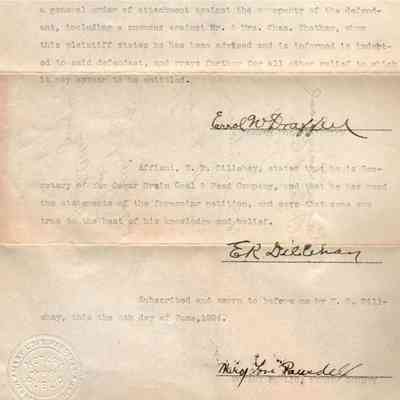 a general order of attachment against the property of the defend-
ant, including a summons against Mr. & Mrs. Chas. Chatham, whom
this plaintiff states he has been advised and is informed is indebt-
ed to said defendant, and prays further for all other relief to which
it may appear to be entitled.
Errol W Draffen
Affiant, E. R. Dillehay, states that he is Sec-
retary of the Grain Coal & Feed Company, and that he has read
the statements of the foregoing petition, and says that same are
true to the best of his knowledge and belief.
E R Dillehay
Subscribed and sworn to before me by E. R. Dille-
hay, this the day of June, 1924.